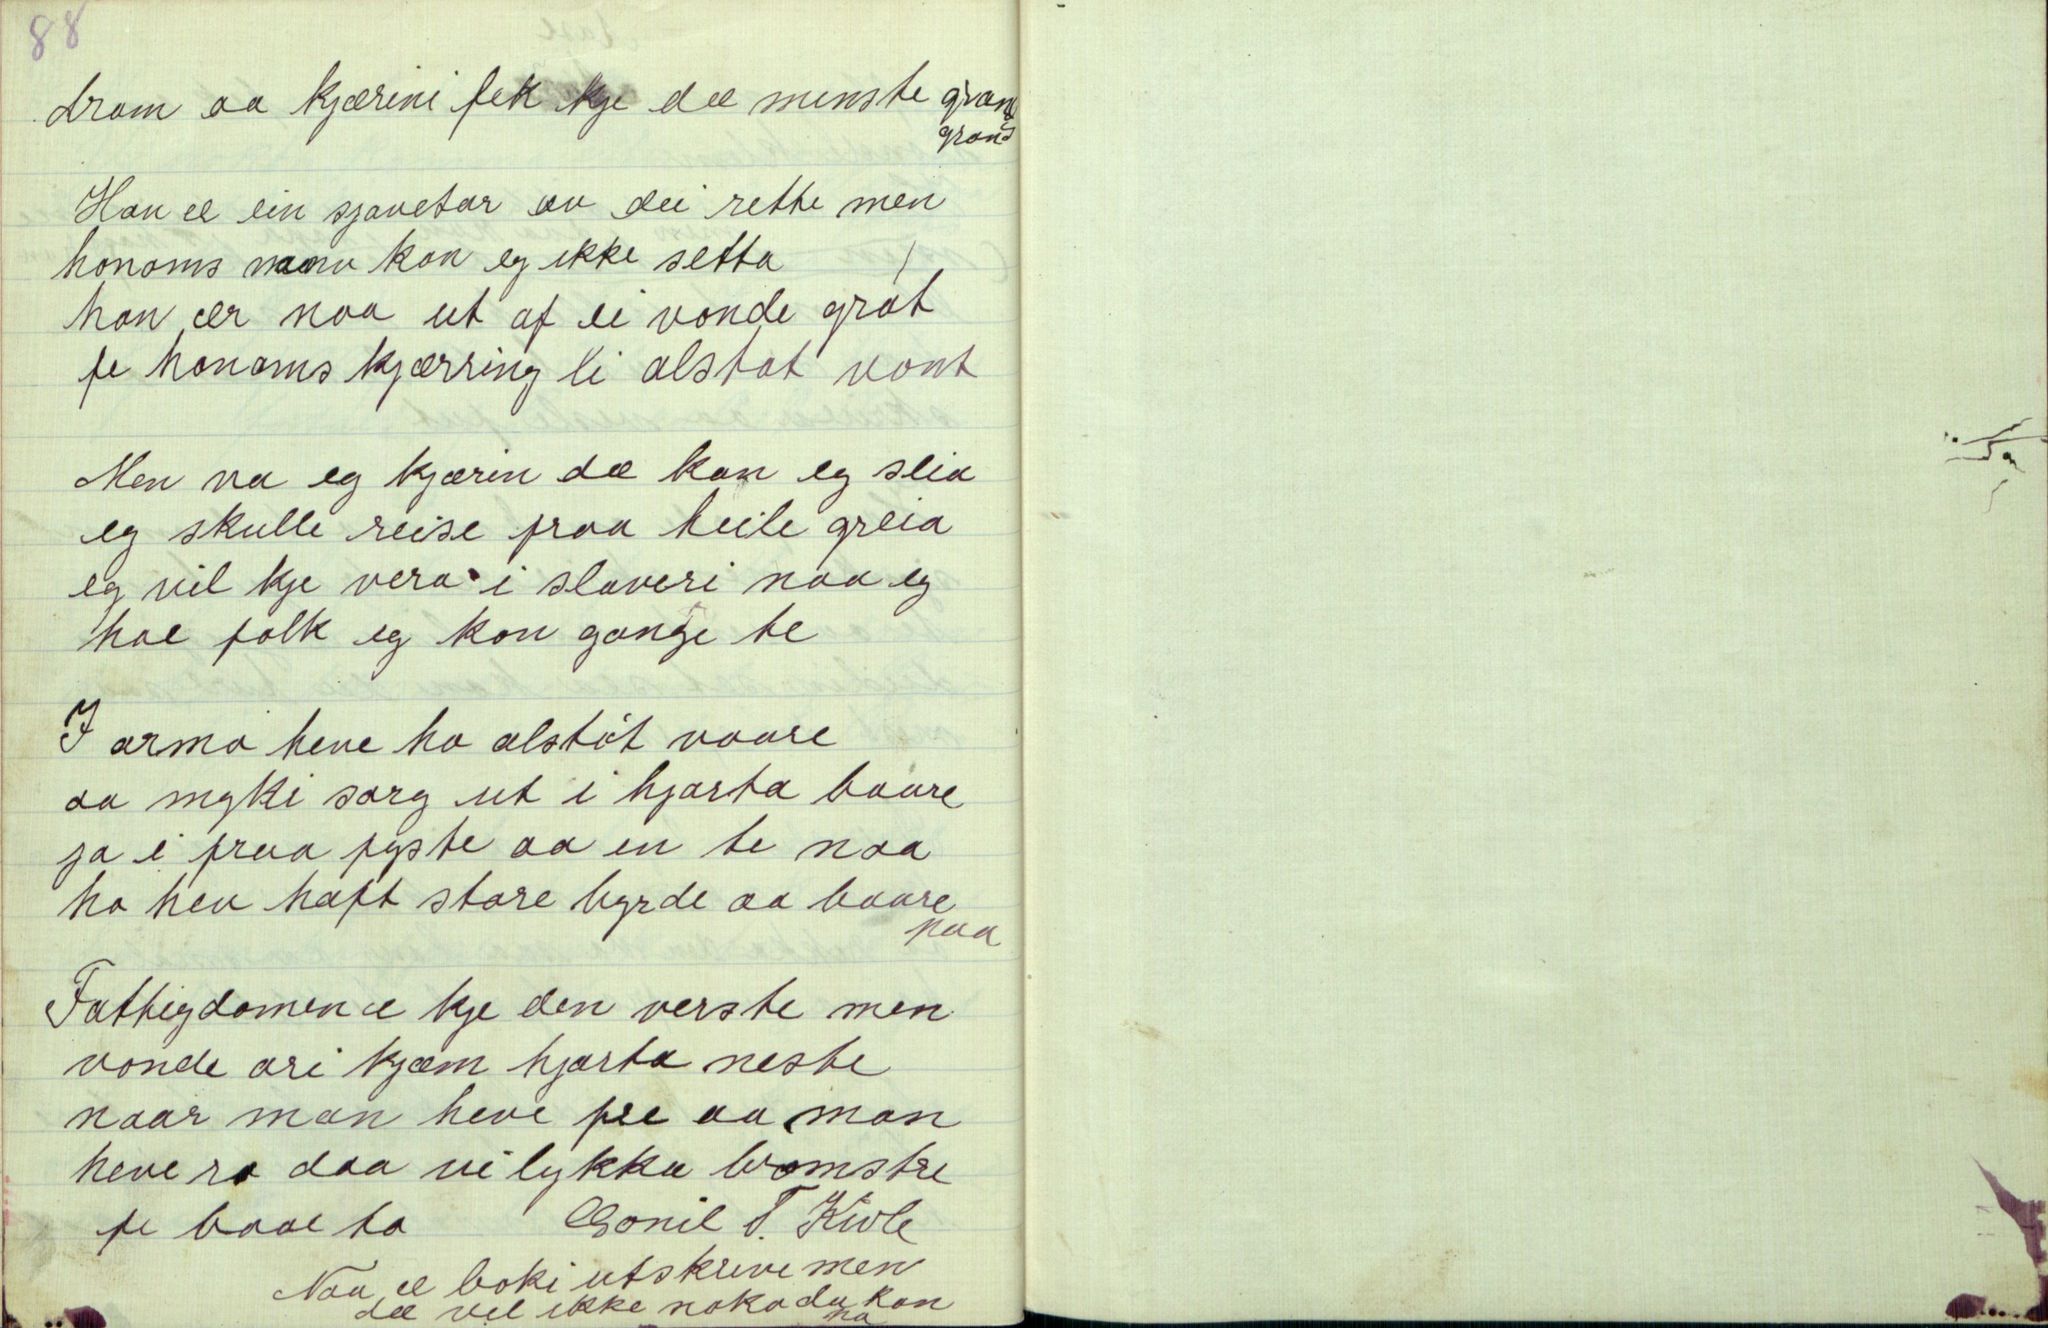 88
dram aa kjærini fek kje dæ minste grand
grand
Han æ ein sjavetar av dei rette men
honoms navn kan eg ikke setta
han ær naa ut af ei vonde grót
fe honoms kjærring li alstøt vont
Men va eg kjærin dæ kan eg seia
eg skulle reise fraa heile greia
eg vil kje vera i slaveri naa eg
hae folk eg kan gange te
I armo heve ho alstót vaare
aa myki sorg ut i hjarta baare
ja i fraa fyste aa en te naa
ho hev haft store byrde aa baare
paa
Fattigdomen æ kje den verste men
vonde ori kjæm hjarta neste
naar man heve fre aa man
heve ro daa vi lykka bromstre
fe baae to Gonil T. Kivle
Naa æ boki utskreve men
dæ vil ikke noko du kan
ha